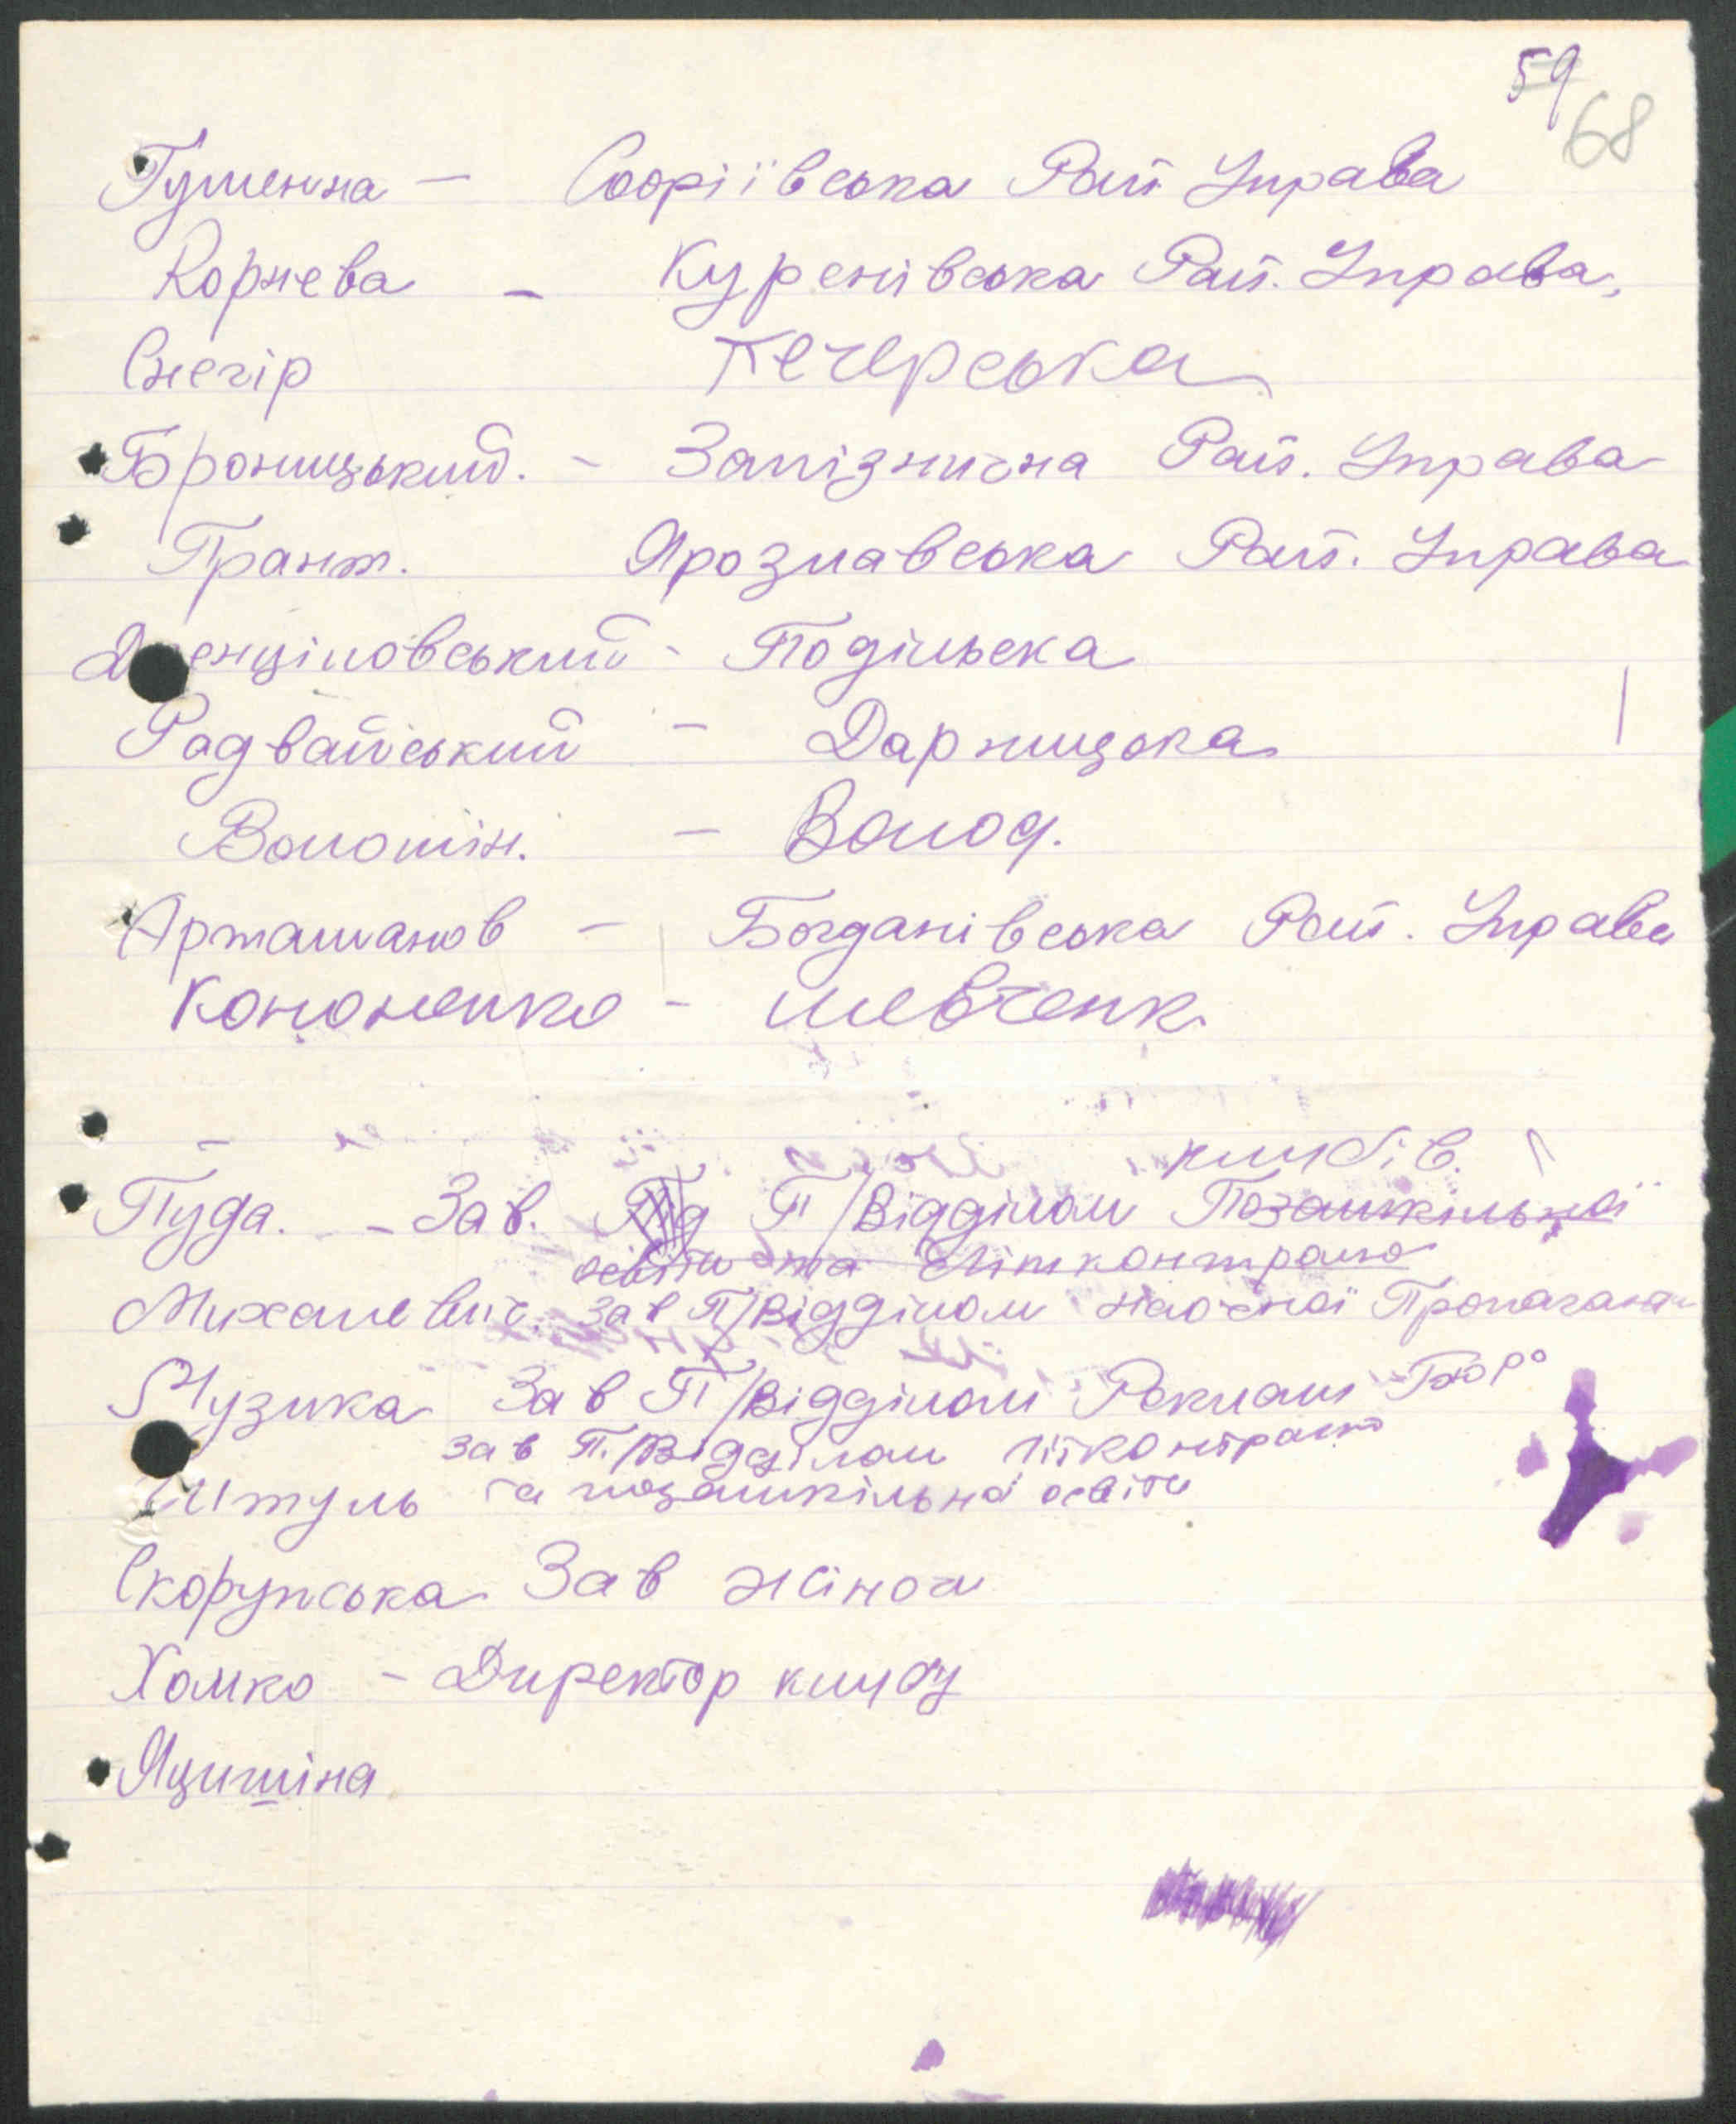 59
68
Гуменна — Софіївська Рай Управа
Корнева – Куренівська Рай. Управа,
Снегір Печерська
Броницький. - Залізнична Рай. Управа
Грант. Ярославська Рай. Управа
Подільска
Радвайський – Дарницька
Волошін. – Волод.
Арташанов – Богданівська Рай. Управа
Кононенко - Шевченк
клубів.
Пуда. - Зав. Під П/Відділом Позашкільної
освіти та Літконтролю
Михалевич. Зав П/Відділом Наочної Пропаганди
Музика Зав П/Відділом Реклам Бюро
зав П./Відділом літконтролю
Штуль та позашкільної освіти
Скорупська Зав жіноч
Хомко - Директор клубу
Яцишіна